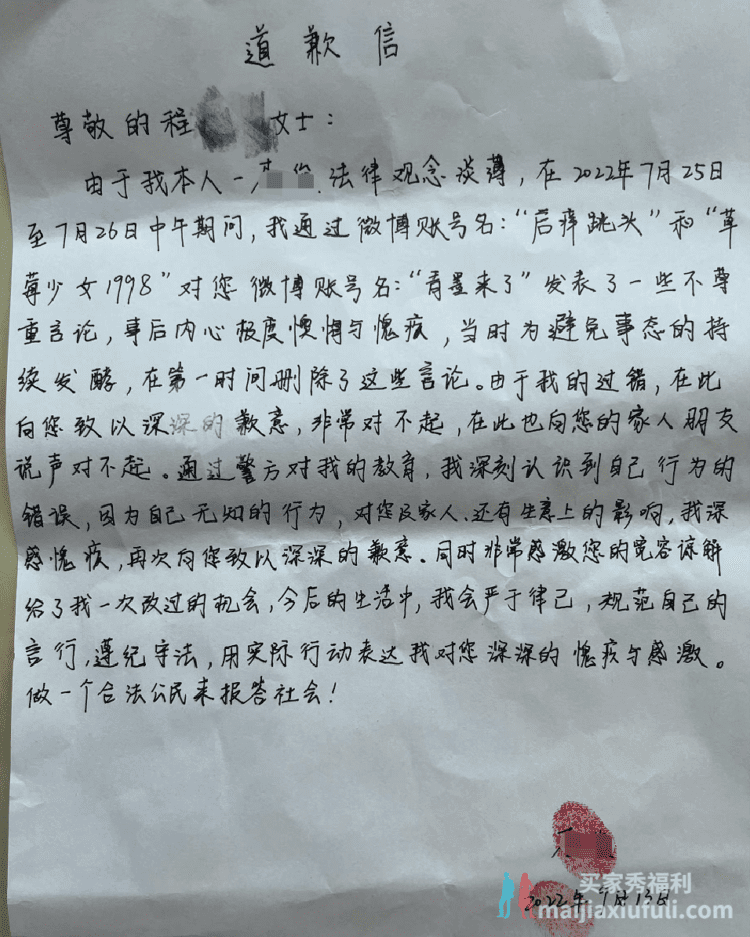 道歉信
尊敬的程 女士：
由于我本人一 法律观念淡薄，在2022年7月25日
至7月26日中午期间，我通过微博账号名：“后 跳头”和“草
莓少女1998”对您微博账号名：“看星来了”发表了一些不尊
重言论，事后内心极度懊悔与愧疚，当时为避免事态的持
续发酵，在第一时间删除了这些言论。由于我的过错，在此
向您致以深深的歉意，非常对不起，在此也向您的家人朋友
说声对不起。通过警方对我的教育，我深刻认识到自己行为的
错误，因为自己无知的行为，对您及家人、还有生意上的影响，我深
感愧疚，再次向您致以深深的歉意。同时非常感激您的宽容谅解
给了我一次改过的机会，今后的生活中，我会严于律己，规范自己的
言行，遵纪守法，用实际行动表达我对您深深的愧疚与感激。
做一个合法公民来报答社会！
2022年9月13日
买家秀福利
maijiaxiufuli.com